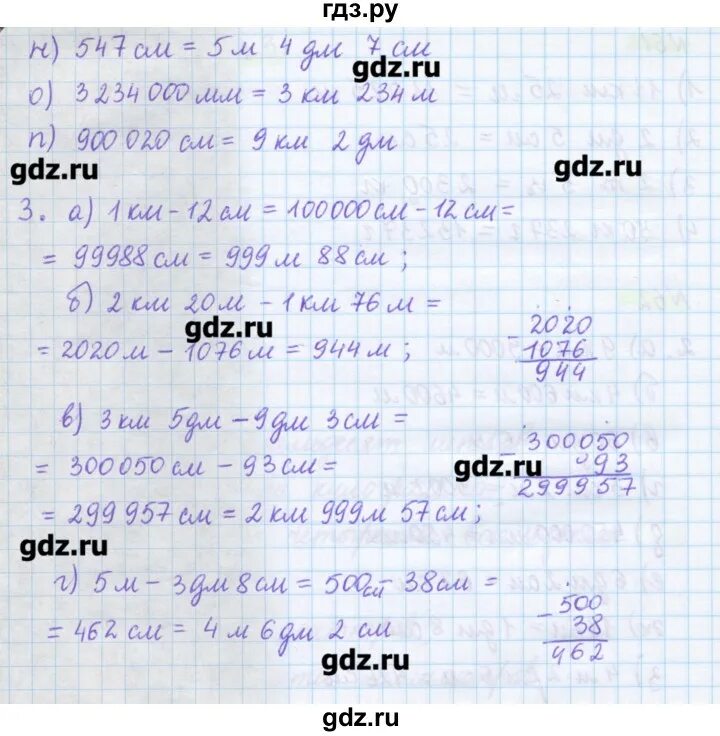 гдз.ру
н) 547 см = 5 м 4 дм 7 см
gdz.ru
о) 3 234 000 мм = 3 км 234 м
п) 900 020 см = 9 км 2 дм
gdz.ru
gdz.ru
3. а) 1 км - 12 см = 100000 см - 12 см =
= 99988 см = 999 м 88 см ;
б) 2 км 20 м - 1 км 76 м =
gdz.ru
= 2020 м - 1076 м = 944 м ;
- 2020
1076
944
в) 3 км 5 дм - 9 дм 3 см =
= 300050 см - 93 см =
gdz.ru
- 300050
93
299957
= 299 957 см = 2 км 999 м 57 см ;
gdz.ru
г) 5 м - 3 дм 8 см = 500 см - 38 см =
= 462 см = 4 м 6 дм 2 см
- 500
38
462
gdz.ru
gdz.ru